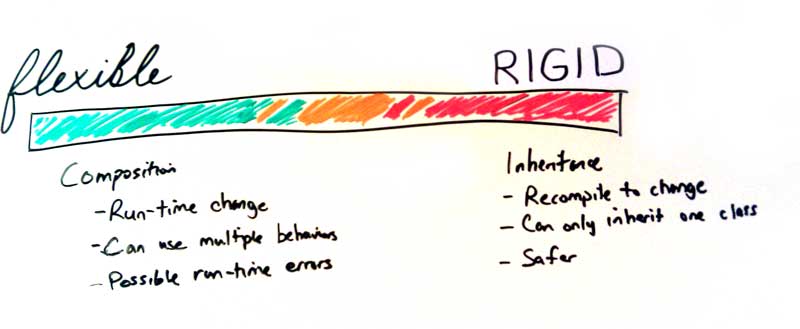 flexible
RIGID
Composition
- Run-time change
- Can use multiple behaviors
- Possible run-time errors
Inheritence
- Recompile to change
- Can only inherit one class
- Safer